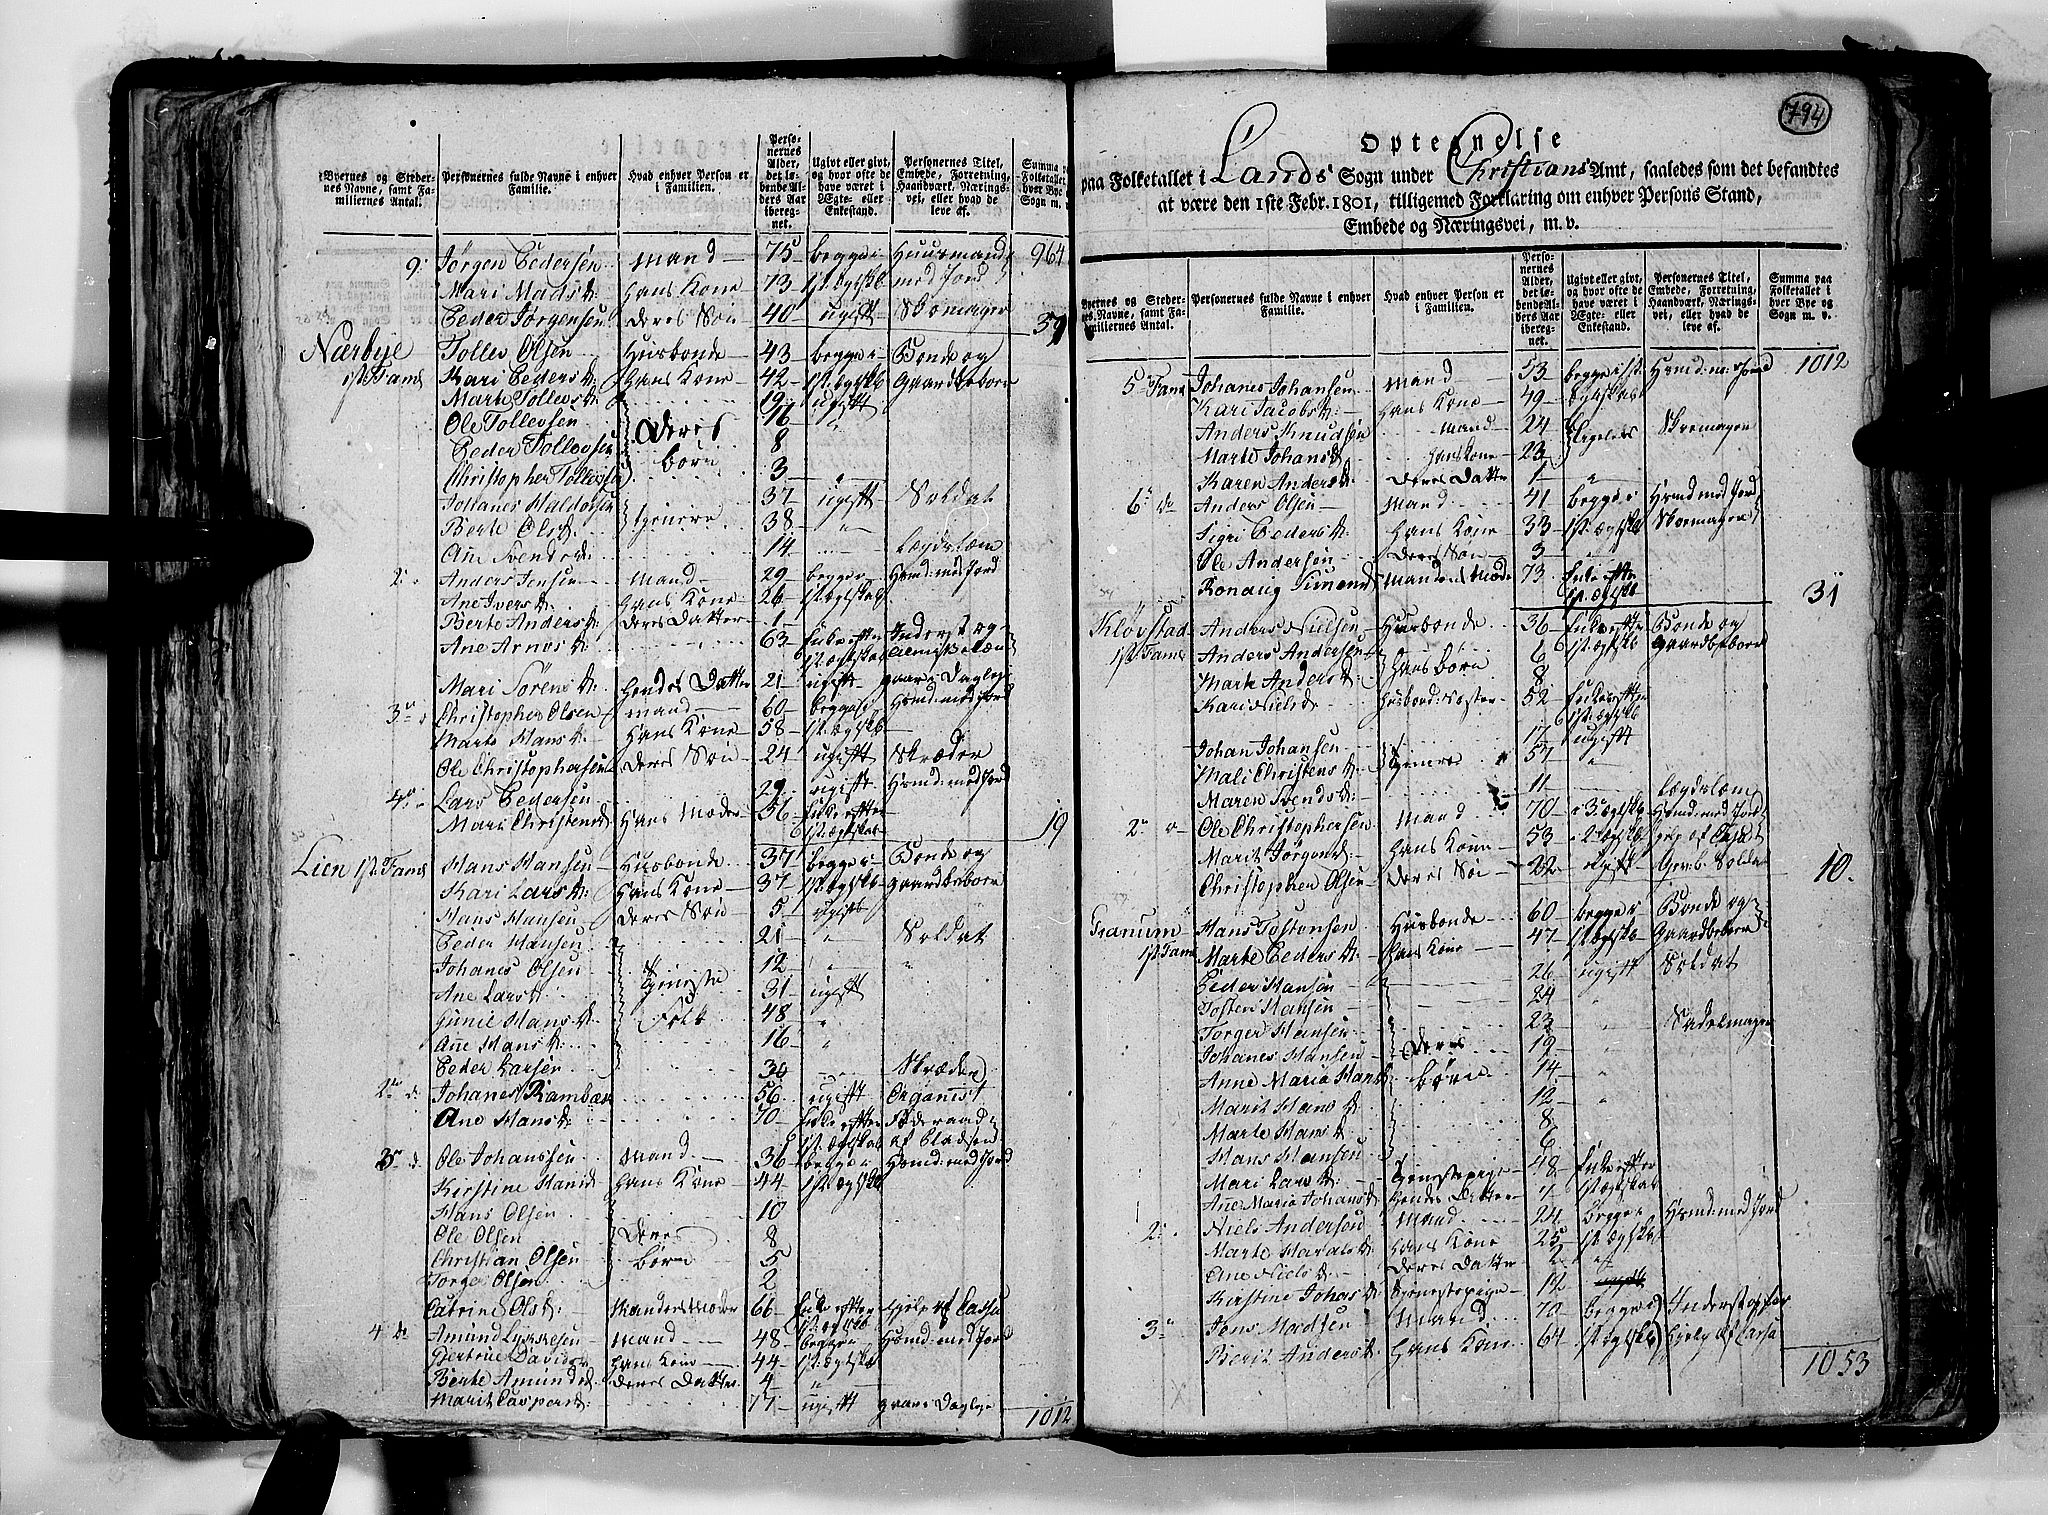 794
Byernes og Steder-
nes Navne, samt Fa-
miliernes Antal.
Personernes fulde Navne i enhver
Familie.
Hvad enhver Person er
i Familien.
Perso-
nernes
Alder,
det lø-
bende Al-
ders Aar
iberegnet.
Ugivt eller givt,
og hvor ofte de
have været i
Ægte- eller
Enkestand.
Personernes Titel,
Embede, Forretning,
Haandværk, Nærings-
vei, eller hvad de
leve af.
Summa paa
Folketallet i
hver Bye og
Sogn m. v.
9. Jørgen Pedersen Mand 75 begge i Huusmand 964
Mari Mads d. Hans Kone 73 1st. ægtesk. med Jord
Peder Jørgensen deres Søn 40 ugift Skomager 39
Nærbye Tollev Olsen Husbonde 43 begge i Bonde og
1st. Fam. Kari Peders d. Hans Kone 42 1st. ægtesk. Gaardbeboer
Marte Tollevs d. 19 ugift
Ole Tollevsen deres 16 "
Peder Tollevsen børn 8
Christopher Tollevsen 3 "
Johanes Haldorsen 37 ugift Soldat
Berte Ols d. tjenere 38 "
Ane Svends d. 14 Lægdslem
2. Anders Jensen Mand 29 begge i Hsmd: med Jord
Ane Ivers d. Hans Kone 26 1st. ægtesk.
Berte Anders d. deres Datter 1
Ane Arnes d. 63 Enke efter Inderst og
1st. ægtesk.
Mari Sørens d. hendes Datter 21 ugift
3. Christopher Olsen Mand 60 begge i Hsmd: med Jord
Marte Hans d. Hans Kone 58 1st. ægtesk.
Ole Christophersen deres Søn 24 ugift Skræder
4. Lars Pedersen 29 ugift Hsmd: med Jord
Mari Christens d. Hans Moder 56 Enke efter
1st. ægtesk. 19
Lien 1st. Fam. Hans Hansen Husbonde 37 begge i Bonde og
Kari Lars d. Hans Kone 37 1st. ægtesk. gaardbeboer
Hans Hansen deres Søn 5 ugift
Peder Hansen 21 " Soldat
Johanes Olsen 12 " "
Ane Lars d. Tjeneste 31 ugift
Gunil Hans d. Folk 48 "
Ane Hans d. 16 "
Peder Larsen 30 Skræder
2. d. Johanes Rambæk 56 ugift Organist
Ane Hans d. 70 Enke efter Føderaad
1st. ægtesk. af Pladsen
3. d. Ole Johanssen Mand 36 begge i Hsmd: med Jord
Kirstine Hans d. Hans Kone 44 1st. ægtesk.
Hans Olsen 10
Ole Olsen deres 8
Christian Olsen børn 5
Torger Olsen 2
Catrine Ols d: Mandens Moder 66 Enke efter hjelp af Cassa
1st. ægtesk.
4 do Amund Lyssesen Mand 48 begge i Hsmd: med Jord
Gertrue Davids d. Hans Kone 44 1st. ægtesk.
Berte Amunds d. deres Datter 4 "
Marit Caspers d. 77 ugift 1012
Opteignelse
paa Folketallet i Lands Sogn under Christians Amt, saaledes som det befandtes
at være den 1ste Febr. 1801, tilligemed Forklaring om enhver Persons Stand,
Embede og Næringsvei, m. v.
Byernes og Steder-
nes Navne, samt Fa-
miliernes Antal.
Personernes fulde Navne i enhver
Familie.
Hvad enhver Person er
i Familien.
Perso-
nernes
Alder,
det lø-
bende Al-
ders Aar
iberegnet.
Ugivt eller givt,
og hvor ofte de
have været i
Ægte- eller
Enkestand.
Personernes Titel,
Embede, Forretning,
Haandværk, Nærings-
vei, eller hvad de
leve af.
Summa paa
Folketallet i
hver Bye og
Sogn m. v.
5. Fam. Johanes Johansen Mand 53 begge i 1st. Hsmd: m: Jord 1012
Kari Jacobs d: Hans Kone 49 ægteskab
Anders Knudsen Mand 24 Ligeledes Skomager
Marte Johans d. Hans Kone 23
Karen Anders d. deres Datter 1 "
6. do Anders Olsen Mand 41 begge i Hsmd med Jord
Sigri Peders d. Hans Kone 33 1st. ægtesk. Skomager
Ole Andersen deres Søn 3 "
Ronaug Simens d. Mandens Moder 73 Enke efter
1st. ægtesk. 31
Kløvstad Anders Nielsen Husbonde 36 Enke efter Bonde og
1st. Fam. Anders Andersen 6 1st. ægtesk. Gaardbeboer
Marte Anders d. Hans børn 8
Kari Niels d. Husbond: Søster 52 Enke efter
1st. ægtesk.
Johan Johansen 17 ugift
Mali Christens d. Tjenere 57 "
Maren Svends d: 11 Lægdslem
2. o Ole Christophersen Mand 70 i 3. ægtesk. Hsmd: med Jord
Marit Jørgens d: Hans Kone 53 i 2. ægtesk.
Christopher Olsen deres Søn 22 ugift Gevb: Soldat 10.
Granum Hans Tostensen Husbonde 60 begge i Bonde og
1st. Fam. Marte Peders d. Hans Kone 47 1st. ægtesk. Gaardbeboer
Peder Hansen 26 ugift Soldat
Tosten Hansen 24 "
Torger Hansen 23 " Sadelmager
Johanes Hansen deres 19 "
Anne Maria Hans d. børn 14 "
Marit Hans d. 12 "
Marte Hans d. 8
Hans Hansen 6
Mari Lars d. Tjenestepige 48 Enke efter
Ane Maria Johans d. hendes Datter 7 1st. ægteskab
2. Niels Andersen Mand 24 begge i Hsmd: med Jord
Marte Haralds d. Hans Kone 25 1st. ægtesk.
Ane Niels d. deres Datter 2 "
Kirstine Johans d. Tjenestepige 12
3. Jens Madsen Mand 70 begge i Inderst og faar
Berit Anders d. Hans Kone 64 1st. ægtesk. hjelp af Cassa
1053